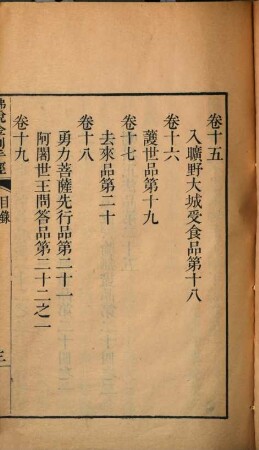 卷十五
入曠野大城受食品第十八
卷十六
護世品第十九
卷十七
去來品第二十
卷十八
勇力菩薩先行品第二十一
阿闍世王問答品第二十二之一
卷十九
目錄
三